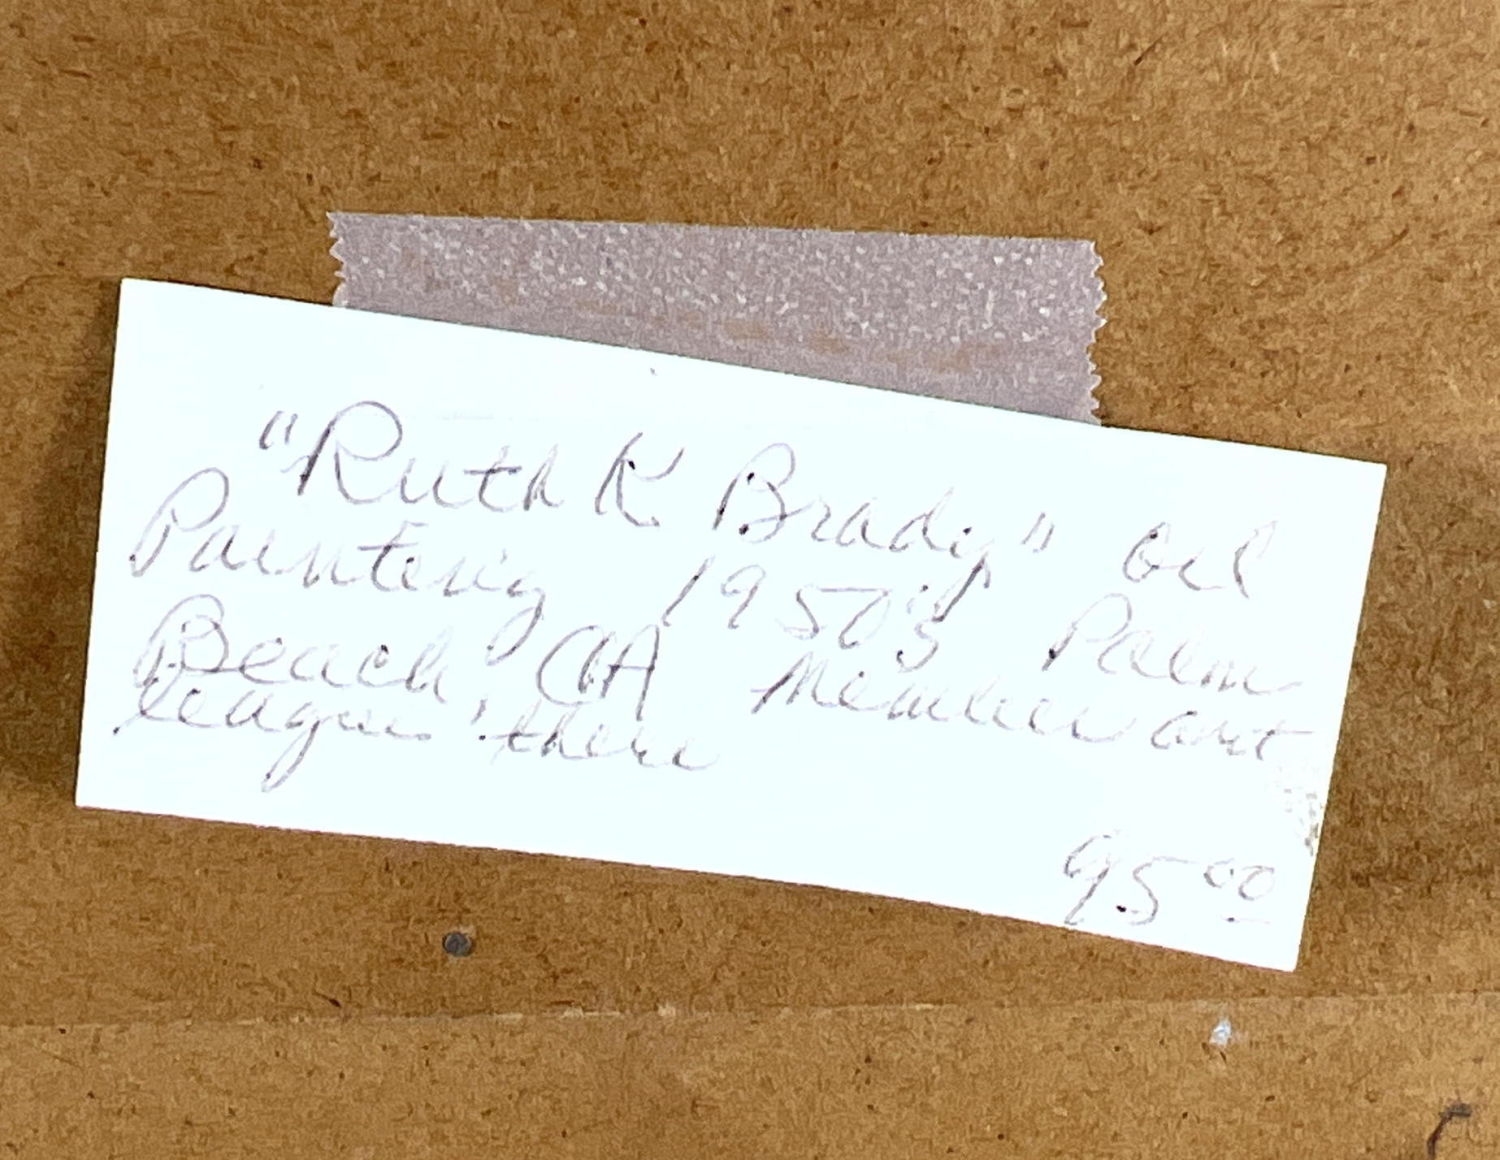 "Ruth K Brady" oil
Painting 1950's Palm
Beach, CA Member art
league there
95 00